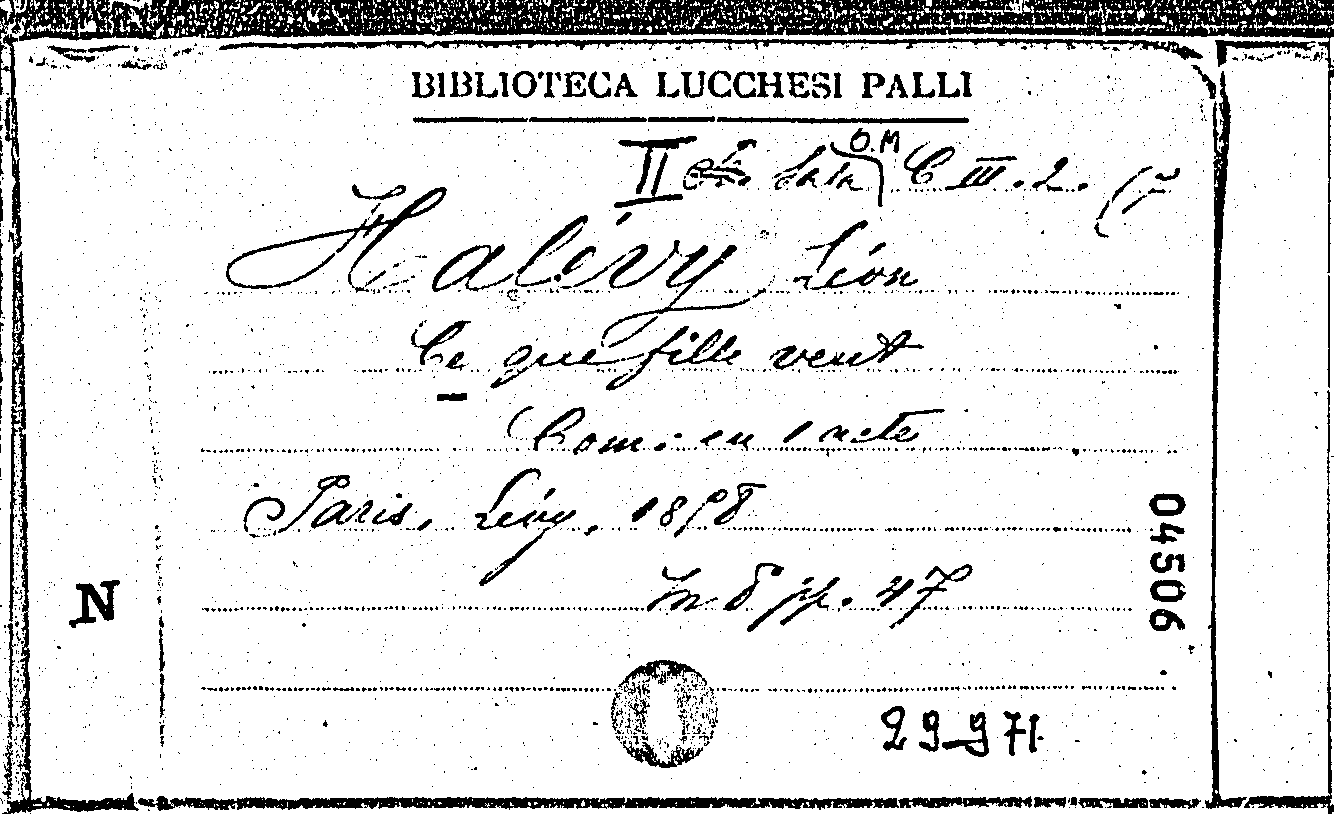 BIBLIOTECA LUCCHESI PALLI
O.M
II Sala C III. 2. (7
Halévy Léon
Ce que fille veut
Com: en 1 acte
Paris, Lévy, 1858
In 8 pp. 47
04506
N
29971